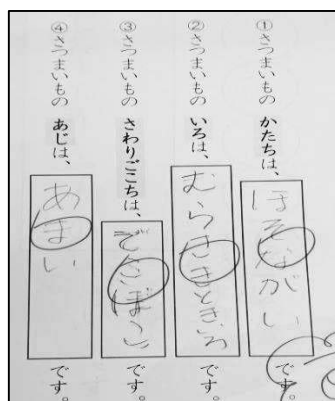 ①さつまいもの かたちは、ほそながい です。
②さつまいもの いろは、むらさきときいろ です。
③さつまいもの さわりごこちは、でこぼこ です。
④さつまいもの あじは、あまい です。